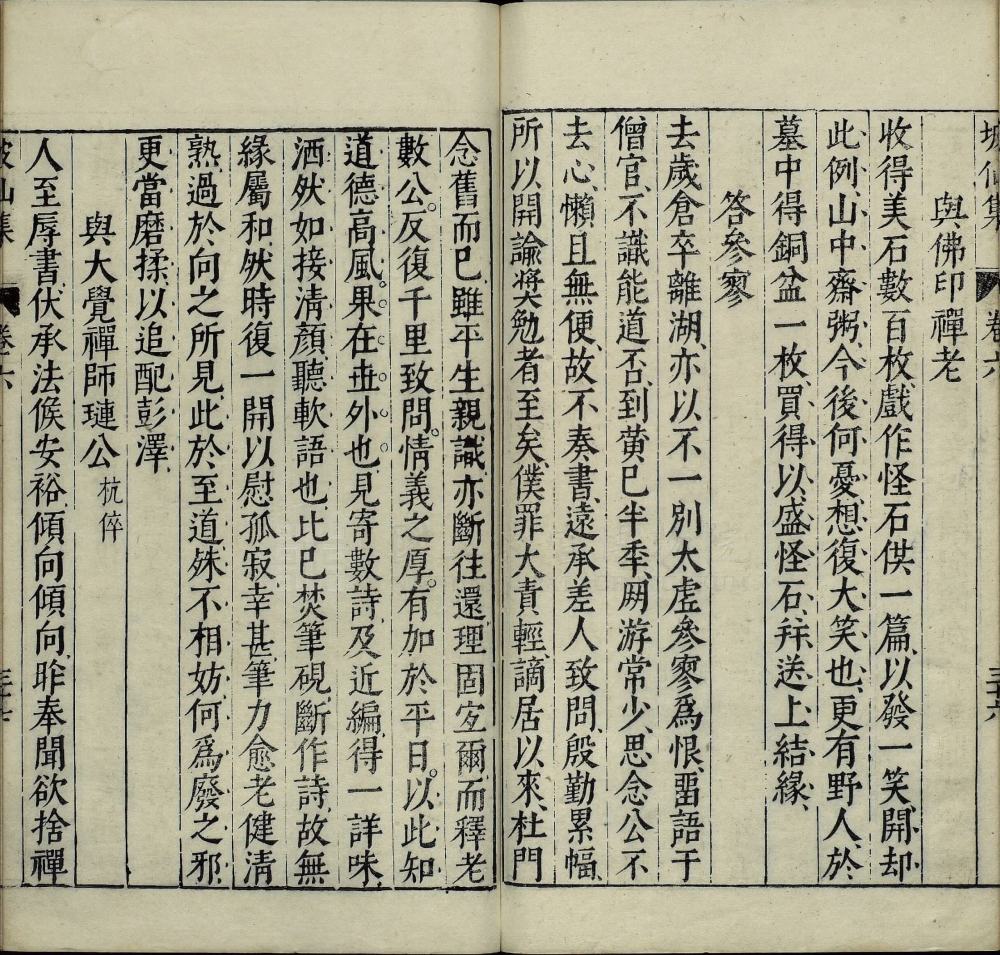 坡仙集 卷六 三十六
與佛印禪老
收得美石數百枚戲作怪石供一篇以發一笑開却
此例山中齋粥今後何憂想復大笑也更有野人於
墓中得銅盆一枚買得以盛怪石并送上結緣
答參寥
去歲倉卒離湖亦以不一別太虛參寥爲恨畱語于
僧官不識能道否到黄已半季朋游常少思念公不
去心懶且無便故不奏書遠承差人致問殷勤累幅
所以開諭將大勉者至矣僕罪大責輕謫居以來杜門
念舊而已雖平生親識亦斷往還理固宜爾而釋老
數公反復千里致問情義之厚有加於平日以此知
道德高風果在世外也見寄數詩及近編得一詳味
洒然如接清顏聽軟語也比已焚筆硯斷作詩故無
緣屬和然時復一開以慰孤寂幸甚筆力愈老健清
熟過於向之所見此於至道殊不相妨何爲廢之邪
更當磨揉以追配彭澤
與大覺禪師璉公 杭倅
人至辱書伏承法候安裕傾向傾向昨奉聞欲捨禪
坡仙集 卷六 三十七